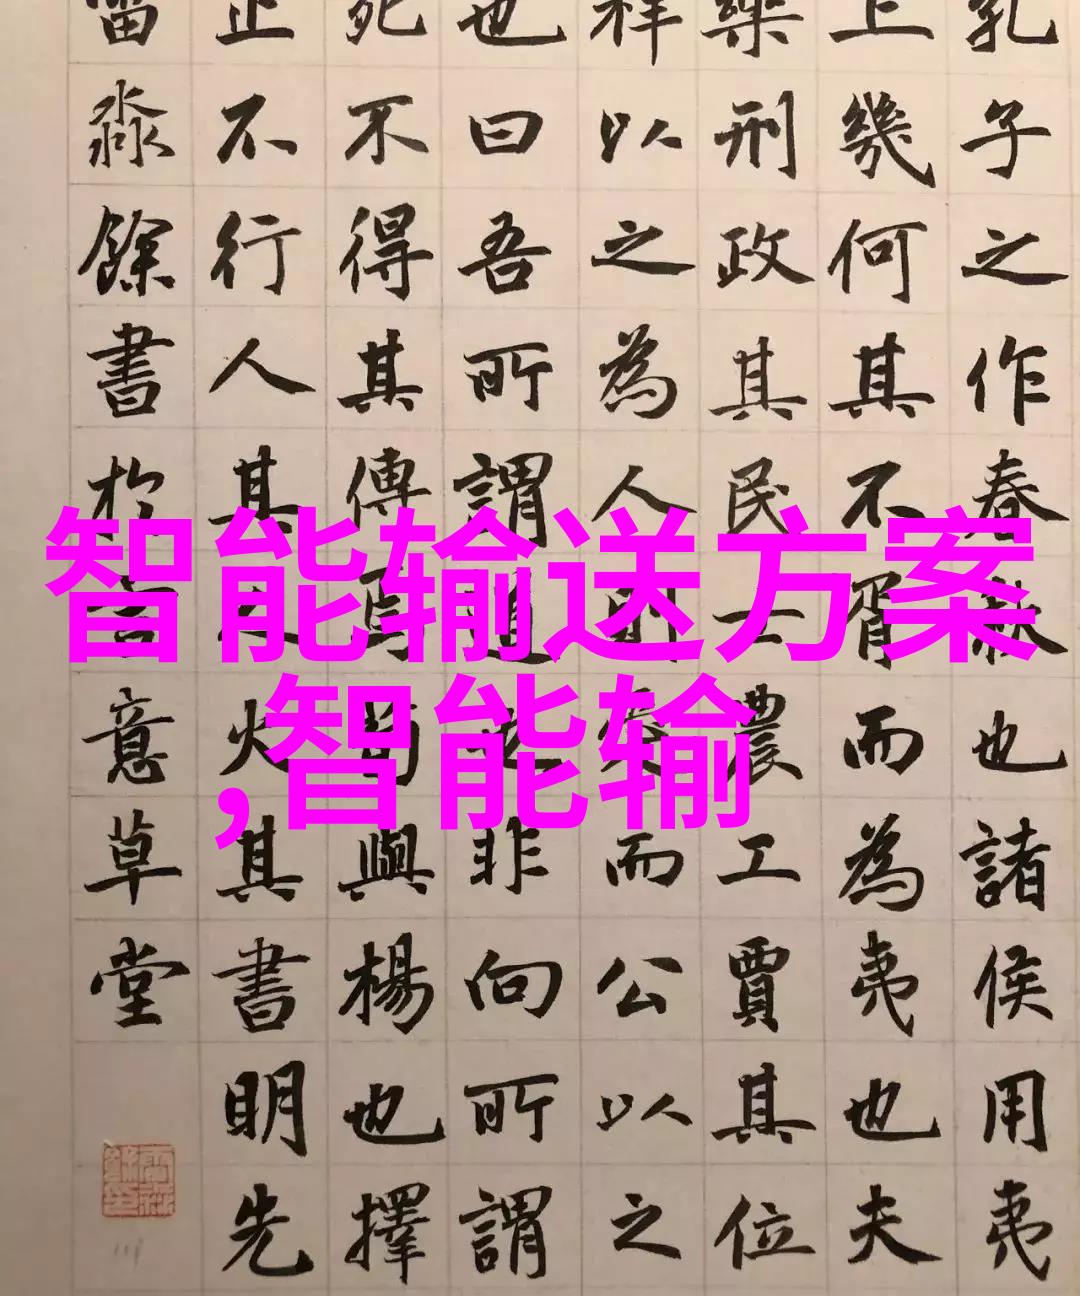 孔子之作春秋也諸侯用夷
上幾何其不胥而為夷也夫
樂刑政其民士農工賈其位
祥以之為人則愛而公以之
也曰吾所謂道也非向所謂
死不得其傳焉荀與楊也擇
止不行人其人火其書明先
留淼餘書於古意草堂
智能输送方案
,智能输